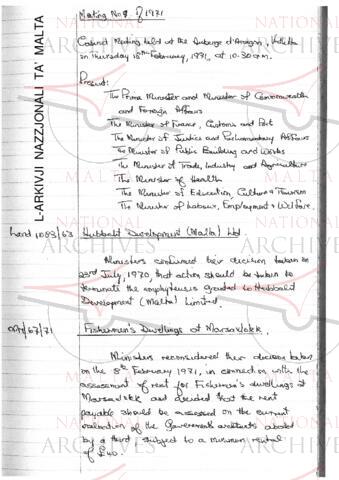 Meeting No 9 of 1971
Cabinet Meeting held at the Auberge d'Aragon, Valletta
on Thursday 18th February, 1971, at 10.30 a.m.
Present:
The Prime Minister and Minister of Commonwealth
and Foreign Affairs
The Minister of Finance, Customs and Port
The Minister of Justice and Parliamentary Affairs
The Minister of Public Building and Works
The Minister of Trade, Industry and Agriculture
The Minister of Health
The Minister of Education, Culture & Tourism
The Minister of Labour, Employment & Welfare.
Land 1083/63 Hubbald Development (Malta) Ltd.
Ministers confirmed their decision taken on
23rd July, 1970, that action should be taken to
terminate the emphyteusis granted to Hubbald
Development (Malta) Limited.
67/71 Fishermen's Dwellings at Marsaxlokk.
Ministers reconsidered their decision taken
on the 8th February 1971, in connection with the
assessment of rent for Fishermen's dwellings at
Marsaxlokk and decided that the rent
payable should be assessed on the current
valuation of the Government architects abated
by a third, subject to a minimum rental
of £40.
L-ARKIVJI NAZZJONALI TA' MALTA
NATIONAL ARCHIVES MALTA